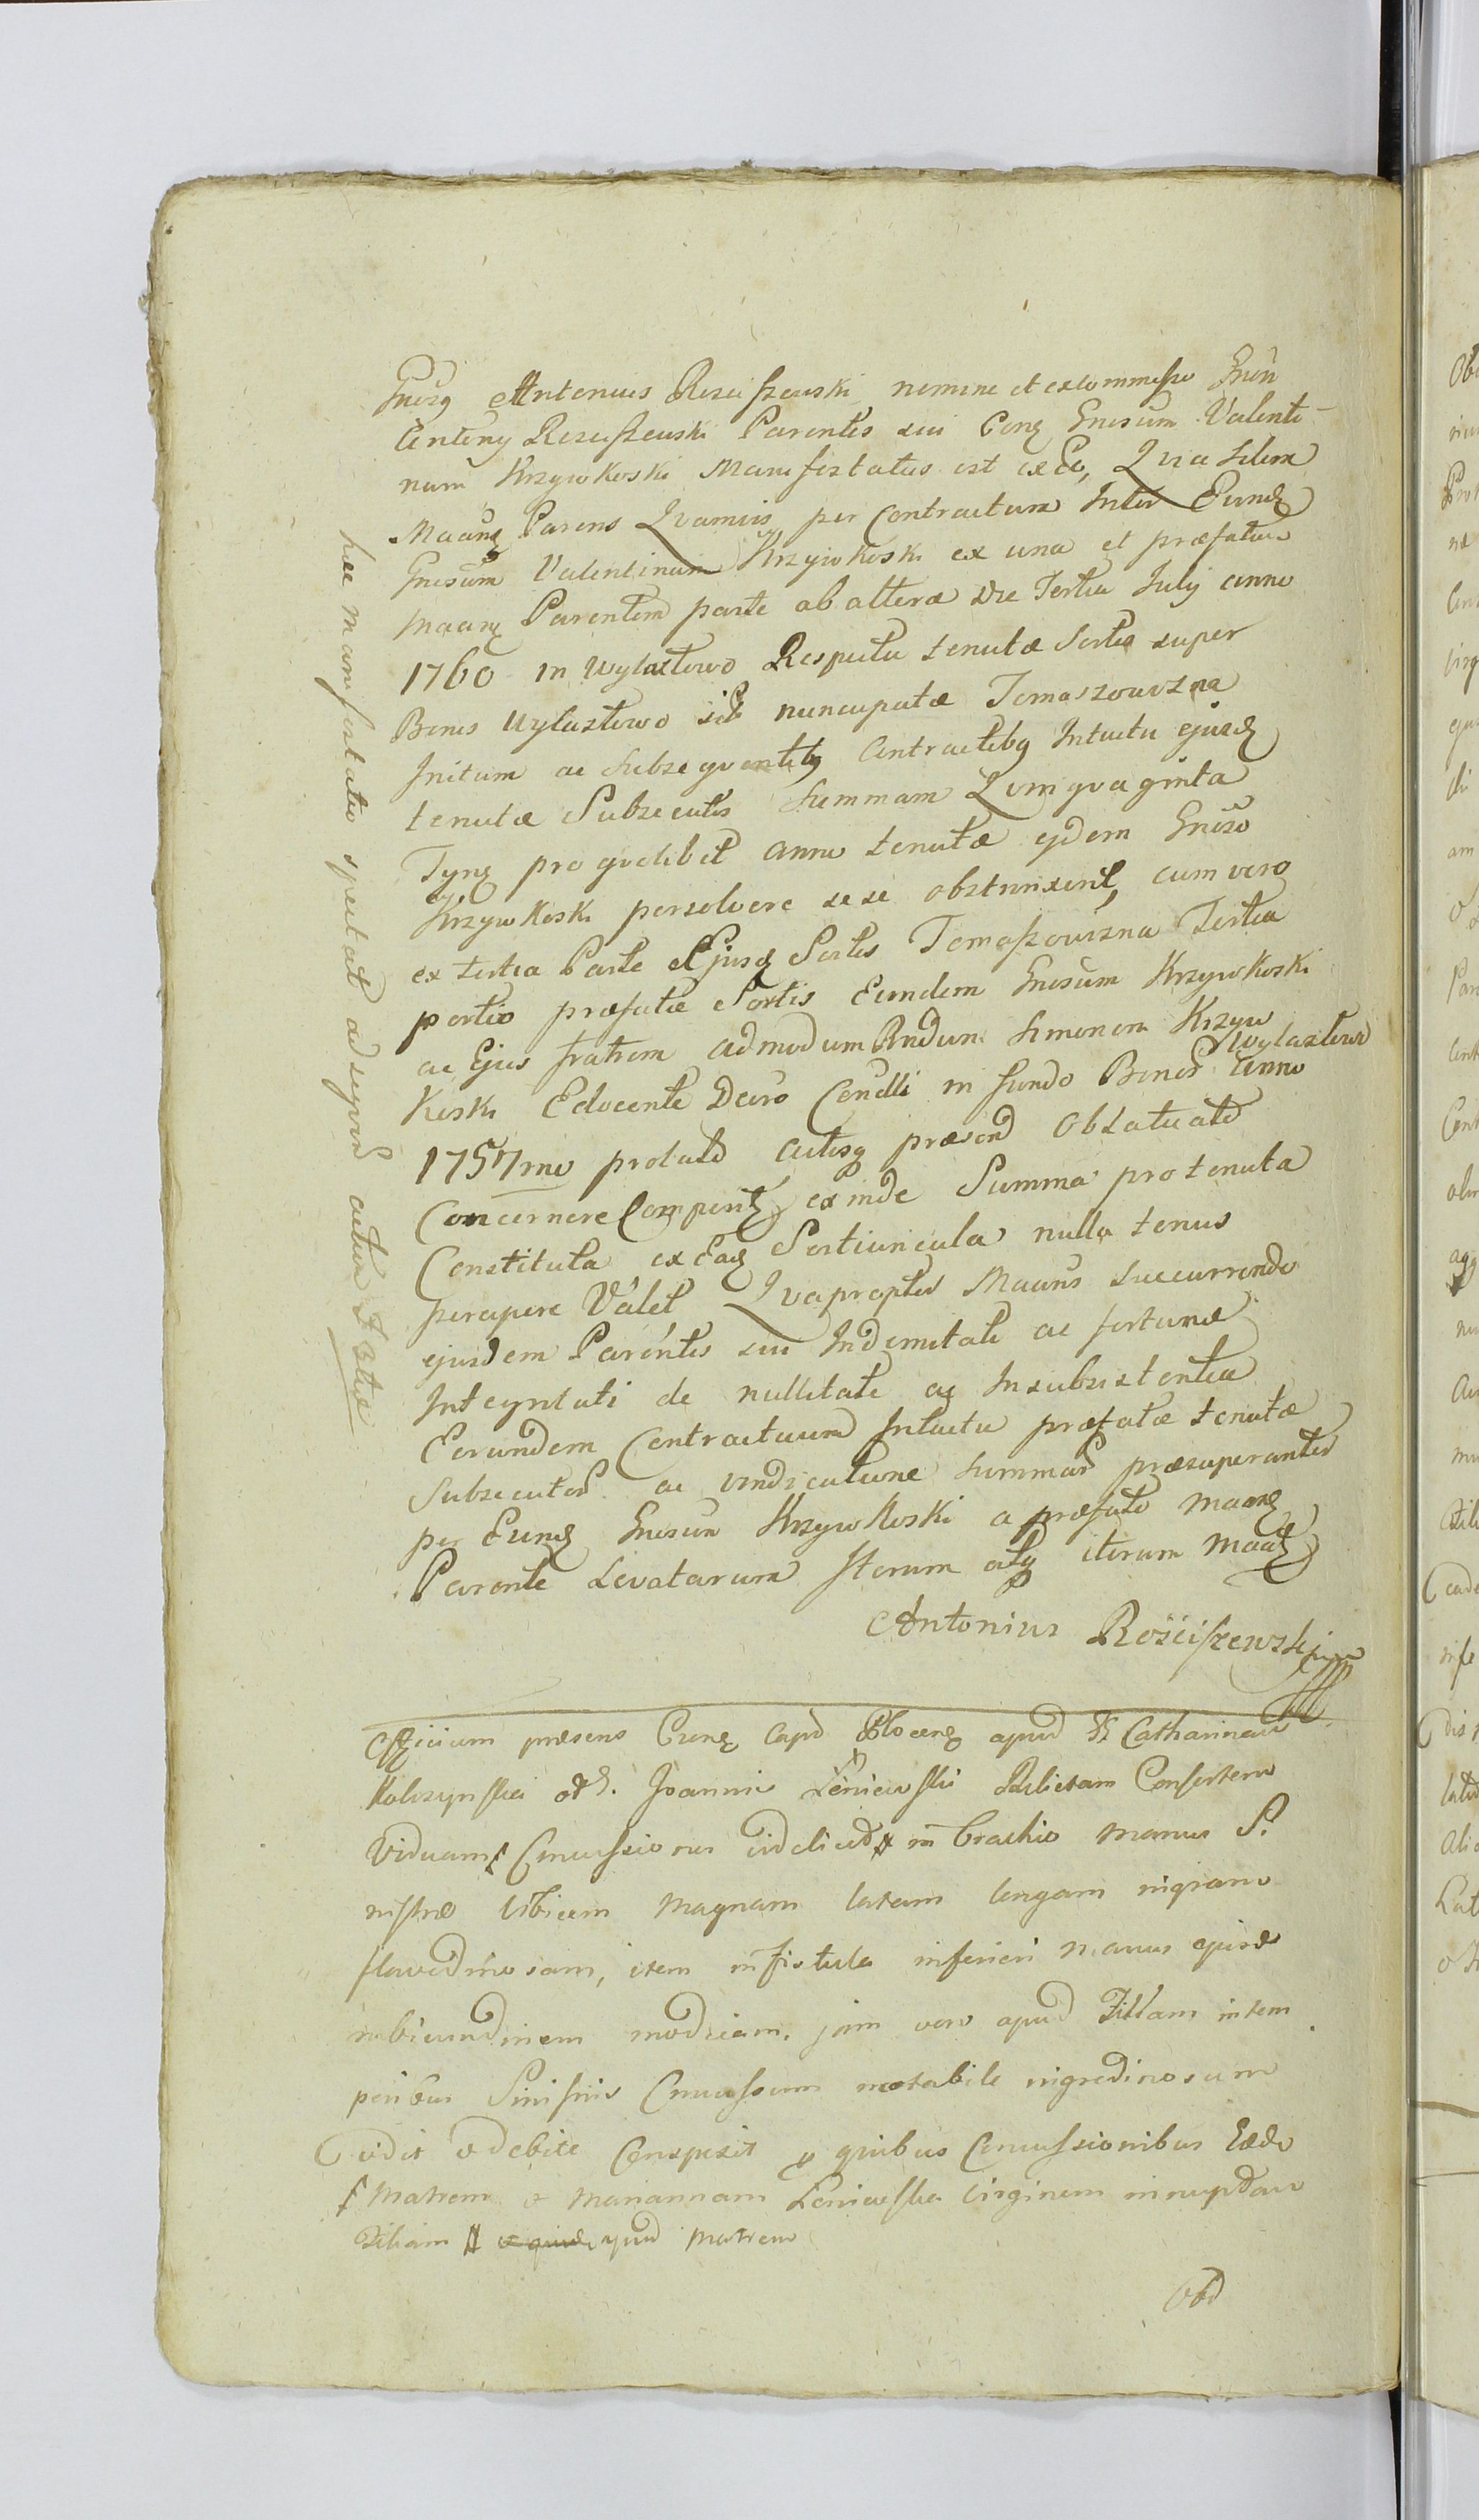 Gnosus Antonius Rosciszewski nomine et ex commisso Gnosi
Antony Rosciszewski Parentis sui Contra Gnosum Valenti
num Krzywkoski Manifestatus est ex Eo, Qvia idem
Maanq Parens Qvamvis per Contractum Inter Eundq
Gnosum Valentinum Krzywkoski ex una et præfatum
Maanq Parentem parte ab altera Die Tertia July anno
1760 in Wylazłowo Respectu tenutæ Sortis super
Bonis Wylazłowo sic nuncupatæ Tomaszowizna
Initum ac subseqventibq Contractibq Intuitu ejusdq
tenutæ Subsecutis Summam Qvinqvaginta
Tynq pro qvolibet anno tenutæ ejdem Gnoso
Krzywkoski persolvere sese obstrinxerit, cum vero
ex tertia Parte Ejusq Sortis Tomaszowizna Tertia
portio præfatæ Sortis Eundem Gnosum Krzywkoski
ac Ejus fratrem admodum Rndum Simonem Krzyw
koski Edocente Decro Condlli in fundo Bonor Wylazłowo Anno
1757mo prolato Actisq præsend Oblatuato
Concernere Comperitq ex inde Summa pro tenuta
Constituta ex Eaq Portiuncula nulla tenus
percipere Valet Qvapropter Maanus succurrendo
ejusdem Parentis sui Indemitati ac fortunæ
Integritati de nullitate ac Insubsistentia
Eorundem Contractuum Intuitu præfatæ tenutæ
Subsecutor ac vindicatione summar præsuperantes
per Eundq Gnosum Krzywkoski a præfato maanq
Parente Levatarum Iterum atq iterum Maatq
Antonius Rościszewski
hæc manifestatio spectat ad seqven actum
Officium præsens Crense Capd Plocenq apud Catharinam
Kolczynska odd. Joannis Leniewski Relictam Consortem
Viduam Concussiones videlicet in brachio manus Si
nistræ libicem magnam latam longam nigram
flavedinosam, item in fistula inferiori manus ejusdem
rubicundinem modicam. jam vero apud Filiam in tem
poribus Sinistris Concussum notabile nigredinosum
vidit & debite Conspexit pro quibus Concussionibus Eede
Matrem & Mariannam Leniewska Virginem innuptam
Filiam apud Matrem
Obd